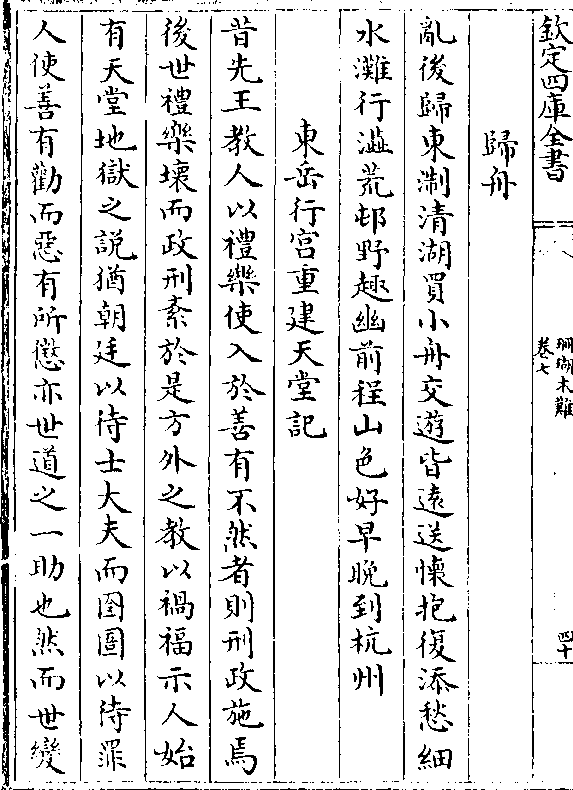 欽定四庫全書
珊瑚木難
卷七
四十
歸舟
亂後歸東淛清湖買小舟交遊皆遠送懷抱復添愁細
水灘行澁荒邨野趣幽前程山色好早晩到杭州
東岳行宫重建天堂記
昔先王教人以禮樂使入於善有不然者則刑政施焉
後世禮樂壊而政刑紊於是方外之教以禍福示人始
有天堂地獄之説猶朝廷以待士大夫而囹圄以待罪
人使善有勸而惡有所懲亦世道之一助也然而世變